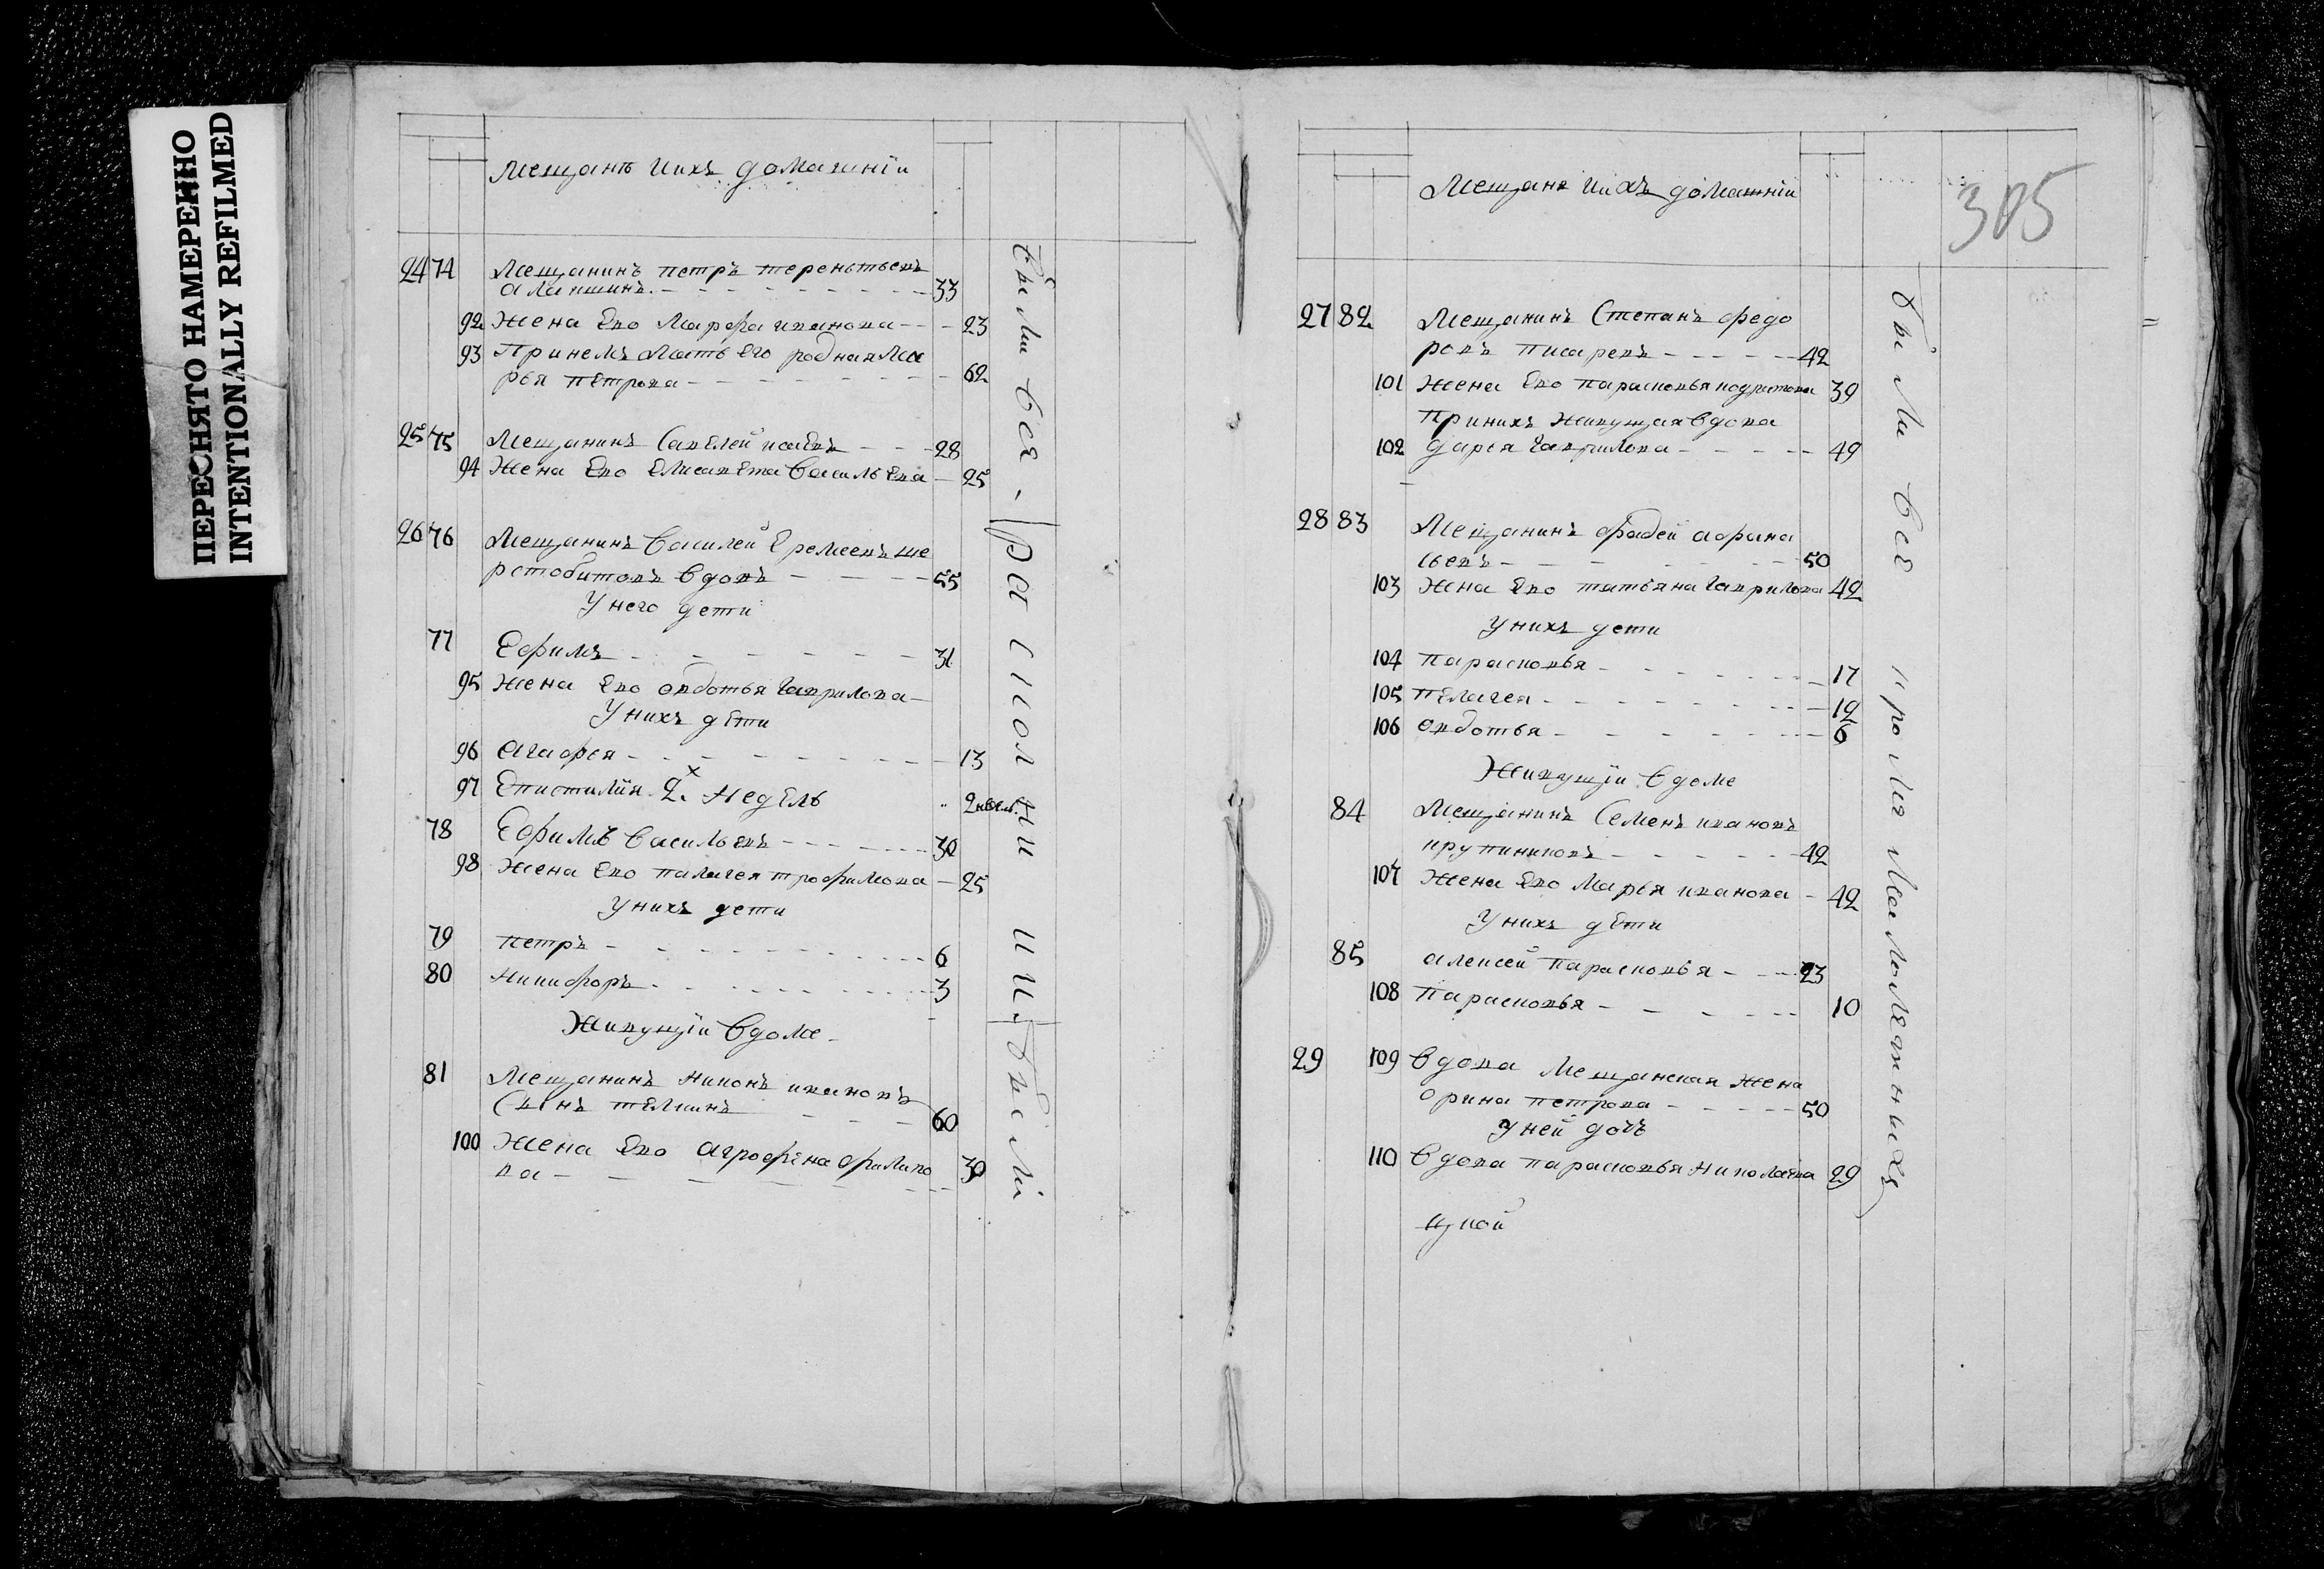 ПЕРЕСНЯТО НАМЕРЕННО
INTENTIONALLY REFILMED
Мещанѣ ихъ домашнїи
24 74 Мещанинъ петръ терентьевъ
алапшинъ 33
92 Жена Ево Марфа иванова 23
93 При немъ мать его родная Ма
рья петрова 62
25 75 Мещанинъ Савелей исаевъ 28
94 Жена Ево Елисавета Васильева 25
26 76 Мещанинъ Василей Еремеевъ ше
рстобитовъ вдовъ 55
У него дети
77 Ефимъ 31
95 Жена Ево овдотья гаврилова
У нихъ дети
96 Агафья 13
97 Епистимия 2. недель 2 недел.
78 Ефимъ Васильевъ 30
98 Жена Ево палагея трофимова 25
У нихъ дети
79 петръ 6
80 Никифоръ 3
Живущїи в доме
81 Мещанинъ Никонъ ивановъ
Сынъ телнинъ 60
100 Жена Ево Аграфена филипо
ва 30
были вся.
раскольники.
были
305
Мещане и ихъ домашнїи
27 82 Мещанинъ Степанъ федо
ровъ писаревъ 42
101 Жена Ево парасковья кодратова 39
При нихъ живущая вдова
102 дарья гаврилова 49
28 83 Мещанинъ фадей афана
сьевъ 50
103 Жена Ево татьяна гаврилова 42
У нихъ дети
104 парасковья 17
105 пелагея 12
106 овдотья 6
Живущїи в доме
84 Мещанинъ Семенъ ивановъ
крупениковъ 42
107 Жена Ево Марья иванова 42
У нихъ дети
85 алексей парасковья 23
108 парасковья 10
29 109 Вдова Мещанская жена
орина петрова 50
У ней дочь
110 Вдова парасковья николаева 29
цкой
были вся кроме малолетныхъ